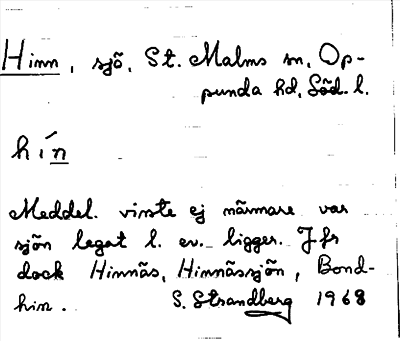 Hinn, sjö, St. Malms sn, Op-
punda hd, Söd. l.
hín
Meddel. visste ej närmare var
sjön legat l. ev. ligger. Jfr
dock Hinnäs, Hinnässjön, Bond-
hin. S. Strandberg 1968